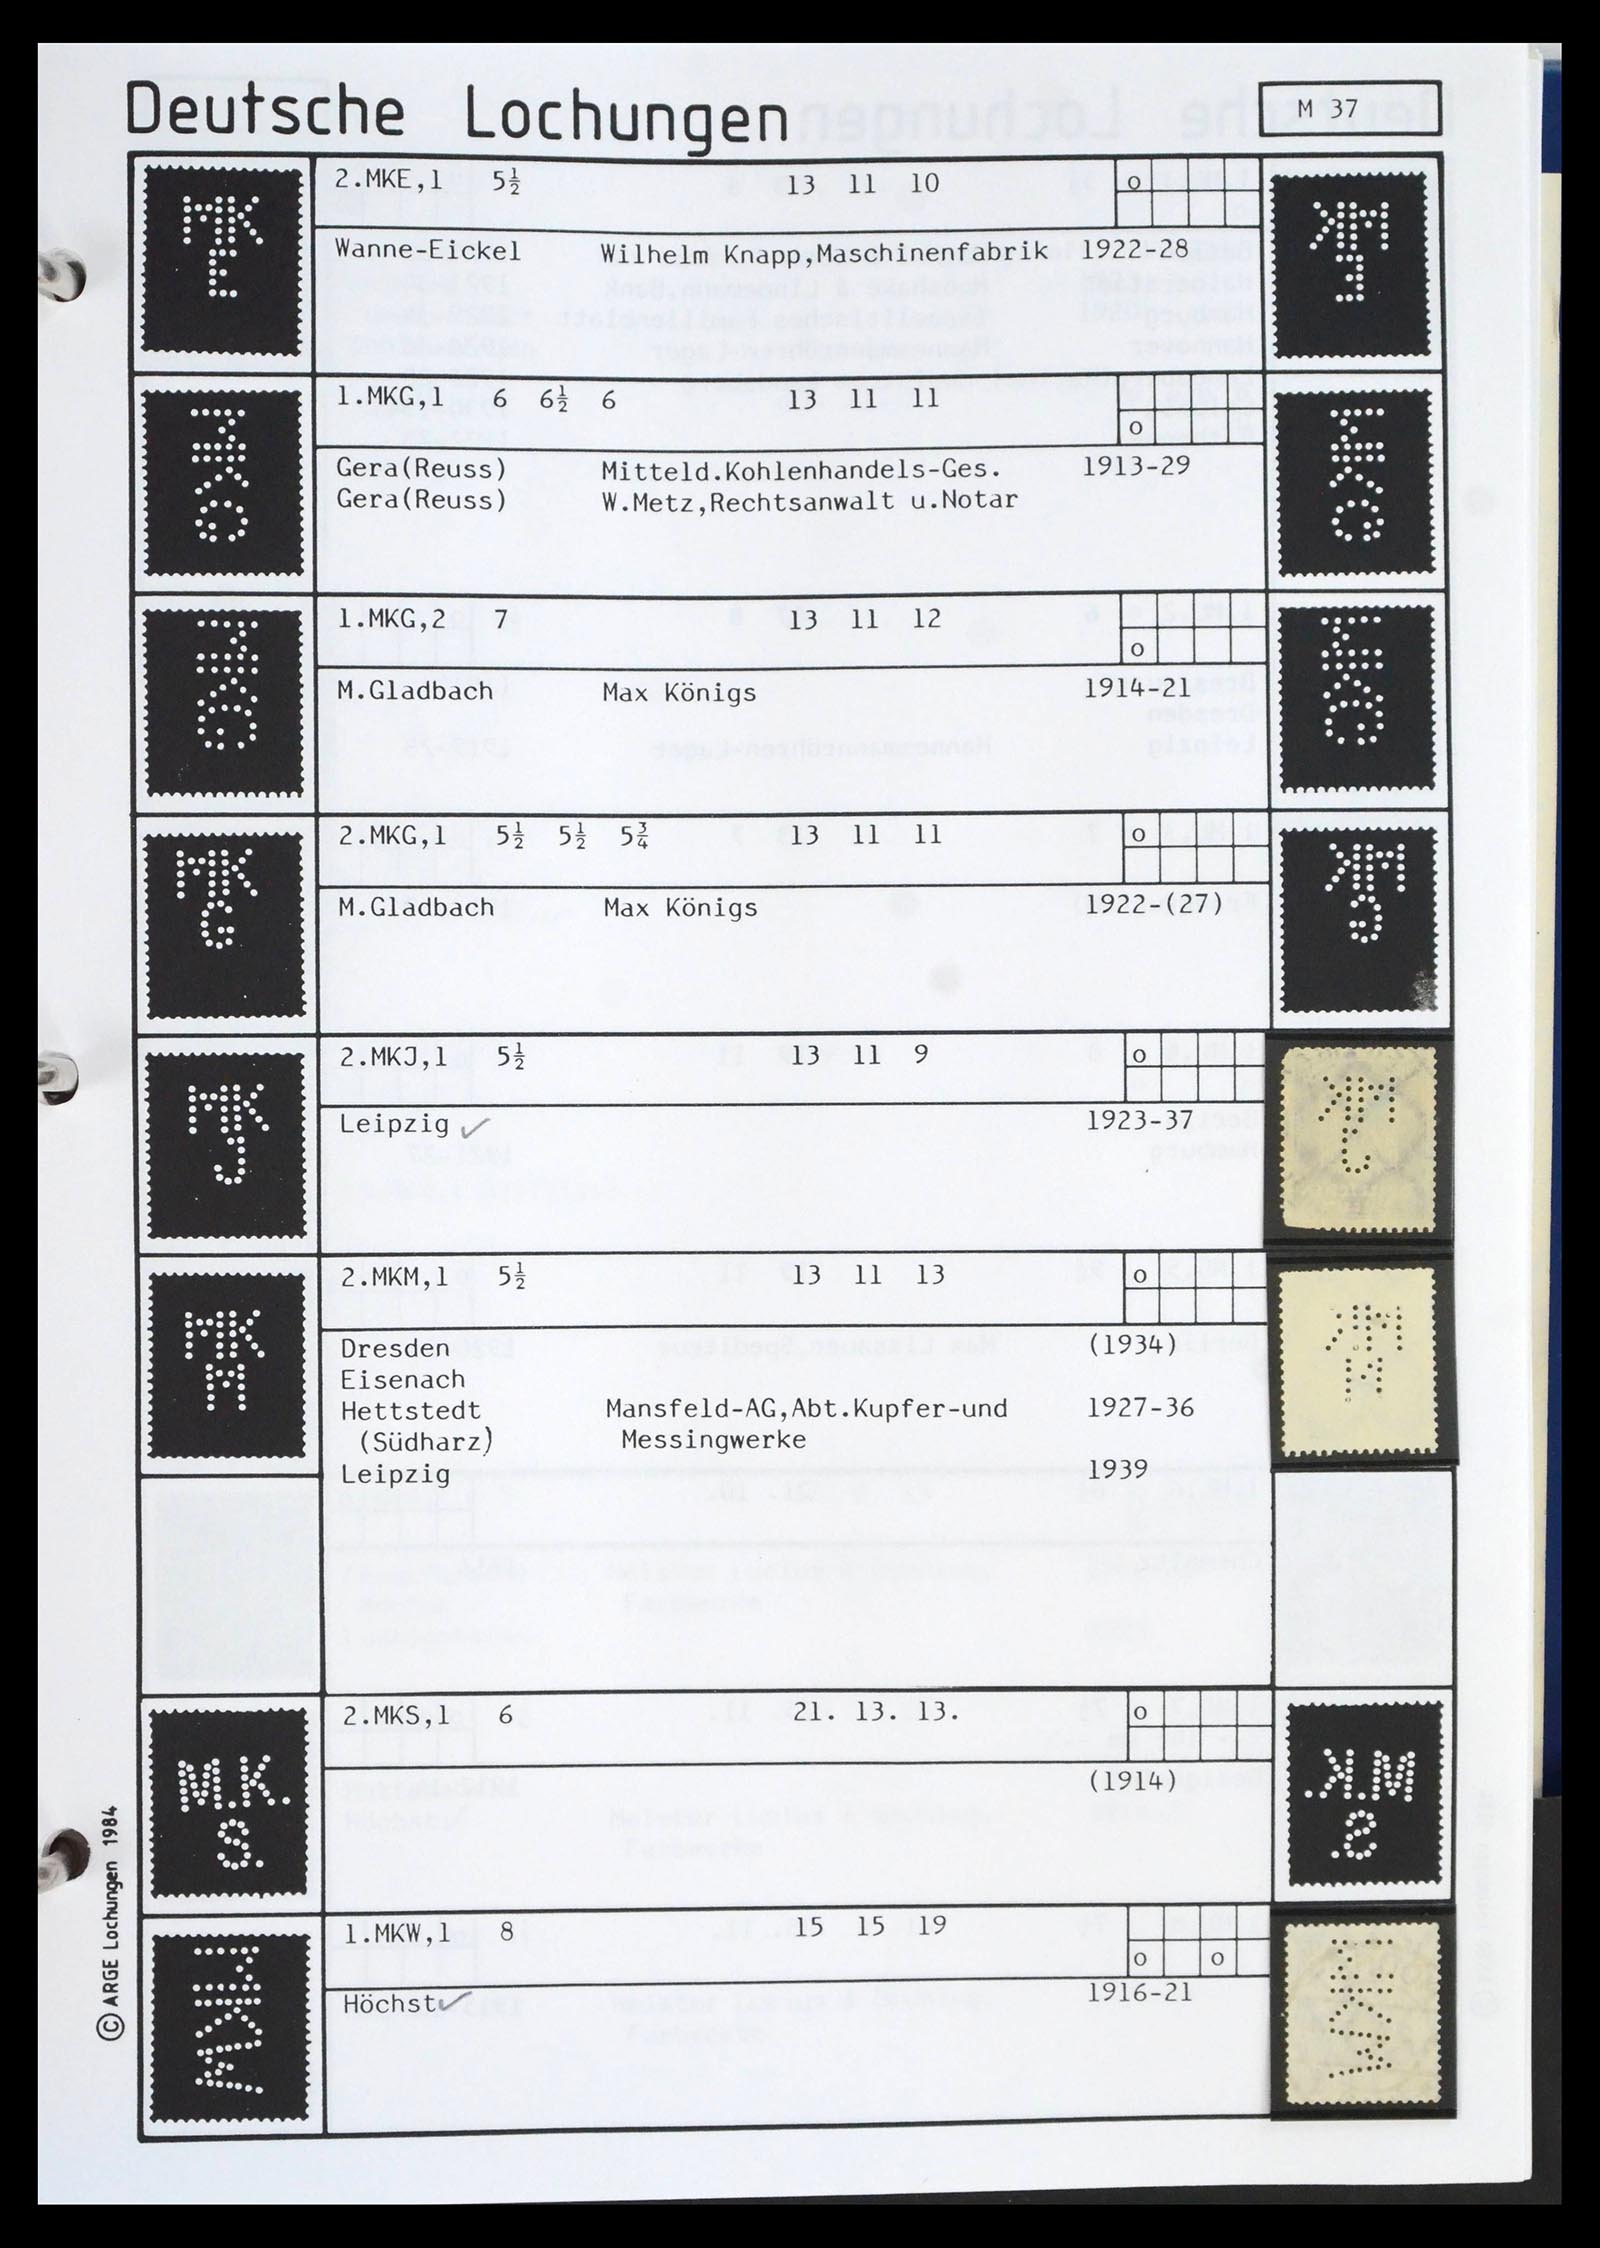 Deutsche Lochungen
M 37
MK
E
2.MKE,1 5½ 13 11 10 o
Wanne-Eickel Wilhelm Knapp,Maschinenfabrik 1922-28
MKG
1.MKG,1 6 6½ 6 13 11 11 o
Gera(Reuss) Mitteld.Kohlenhandels-Ges. 1913-29
Gera(Reuss) W.Metz,Rechtsanwalt u.Notar
MKG
1.MKG,2 7 13 11 12 o
M.Gladbach Max Königs 1914-21
MK
G
2.MKG,1 5½ 5½ 5¾ 13 11 11 o
M.Gladbach Max Königs 1922-(27)
MK
J
2.MKJ,1 5½ 13 11 9 o
Leipzig ✓ 1923-37
MK
M
2.MKM,1 5½ 13 11 13 o
Dresden (1934)
Eisenach
Hettstedt Mansfeld-AG,Abt.Kupfer-und 1927-36
(Südharz) Messingwerke
Leipzig 1939
M.K.
S.
2.MKS,1 6 21. 13. 13. o
(1914)
MKW
1.MKW,1 8 15 15 19 o o
Höchst ✓ 1916-21
© ARGE Lochungen 1984